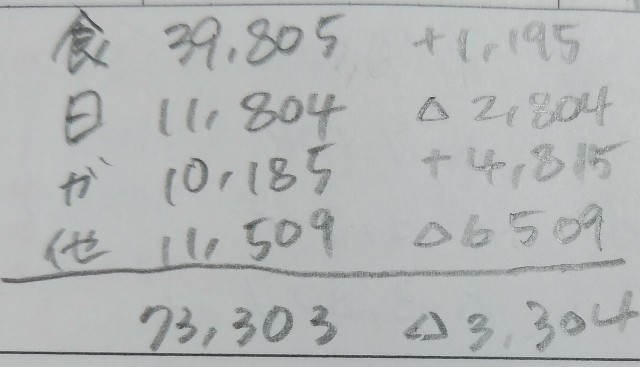 食 39,805 +1,195
日 11,804 △2,804
ガ 10,185 +4,815
他 11,509 △6509
73,303 △3,304